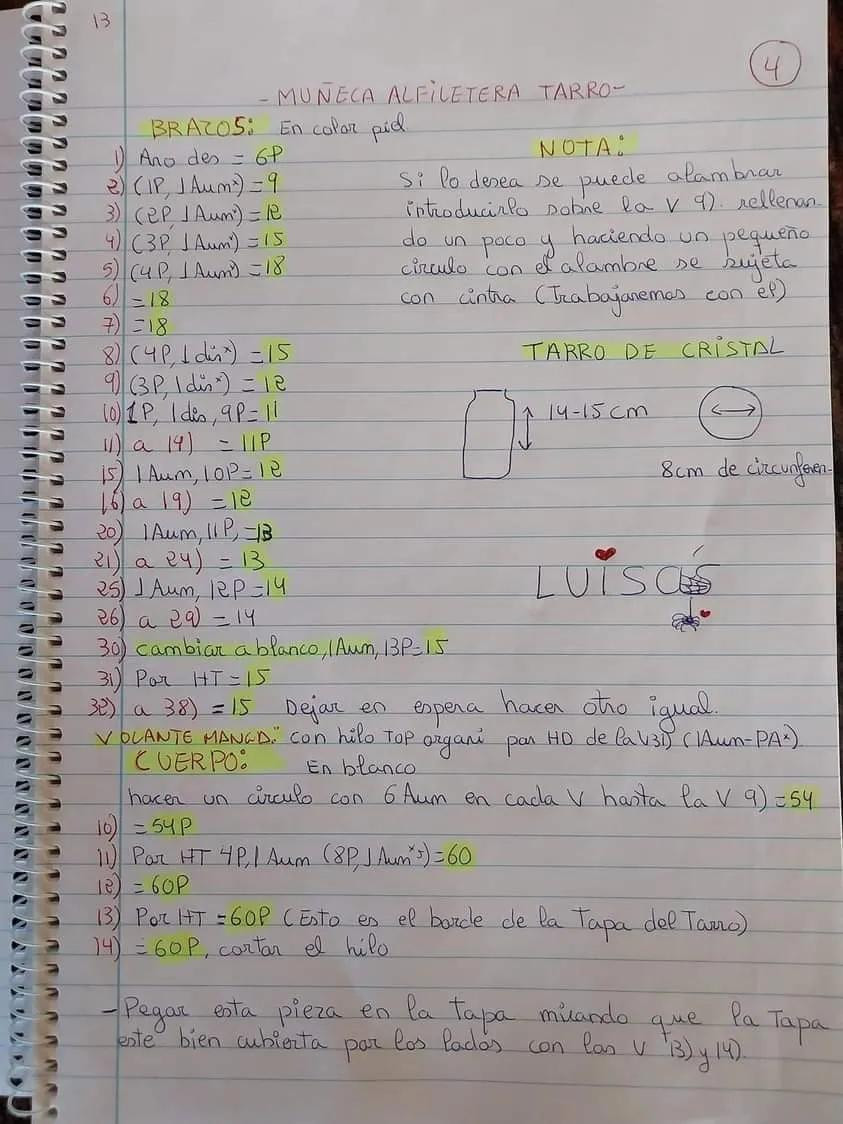 13
4
- MUÑECA ALFILETERA TARRO -
BRAZOS: En color piel
1) Ano des = 6P
2) (1P, 1 Aumˣ) = 9
3) (2P, 1 Aumˣ) = 12
4) (3P, 1 Aumˣ) = 15
5) (4P, 1 Aumˣ) = 18
6) = 18
7) = 18
8) (4P, 1 disˣ) = 15
9) (3P, 1 disˣ) = 12
10) 1P, 1 dis, 9P = 11
11) a 14) = 11P
15) 1 Aum, 10P = 12
16) a 19) = 12
20) 1 Aum, 11P, = 13
21) a 24) = 13
25) 1 Aum, 12P = 14
26) a 29) = 14
30) cambiar a blanco, 1 Aum, 13P = 15
31) Por HT = 15
32) a 38) = 15 Dejar en espera hacer otro igual.
NOTA:
Si lo desea se puede alambrar
introducirlo sobre la V 9). rellenan-
do un poco y haciendo un pequeño
círculo con el alambre se sujeta
con cintra (Trabajaremos con el)
TARRO DE CRISTAL
14-15 cm
8cm de circunferen-
LUISA
VOLANTE MANGA: con hilo TOP organi por HD de la V31) (1Aum-PAˣ)
CUERPO: En blanco
hacer un círculo con 6 Aum en cada V hasta la V 9) = 54
10) = 54P
11) Por HT 4P, 1 Aum (8P, 1 Aumˣ⁵) = 60
12) = 60P
13) Por HT = 60P (Esto es el borde de la Tapa del Tarro)
14) = 60P, cortar el hilo
- Pegar esta pieza en la tapa mirando que la Tapa
este bien cubierta por los lados con las V 13) y 14).